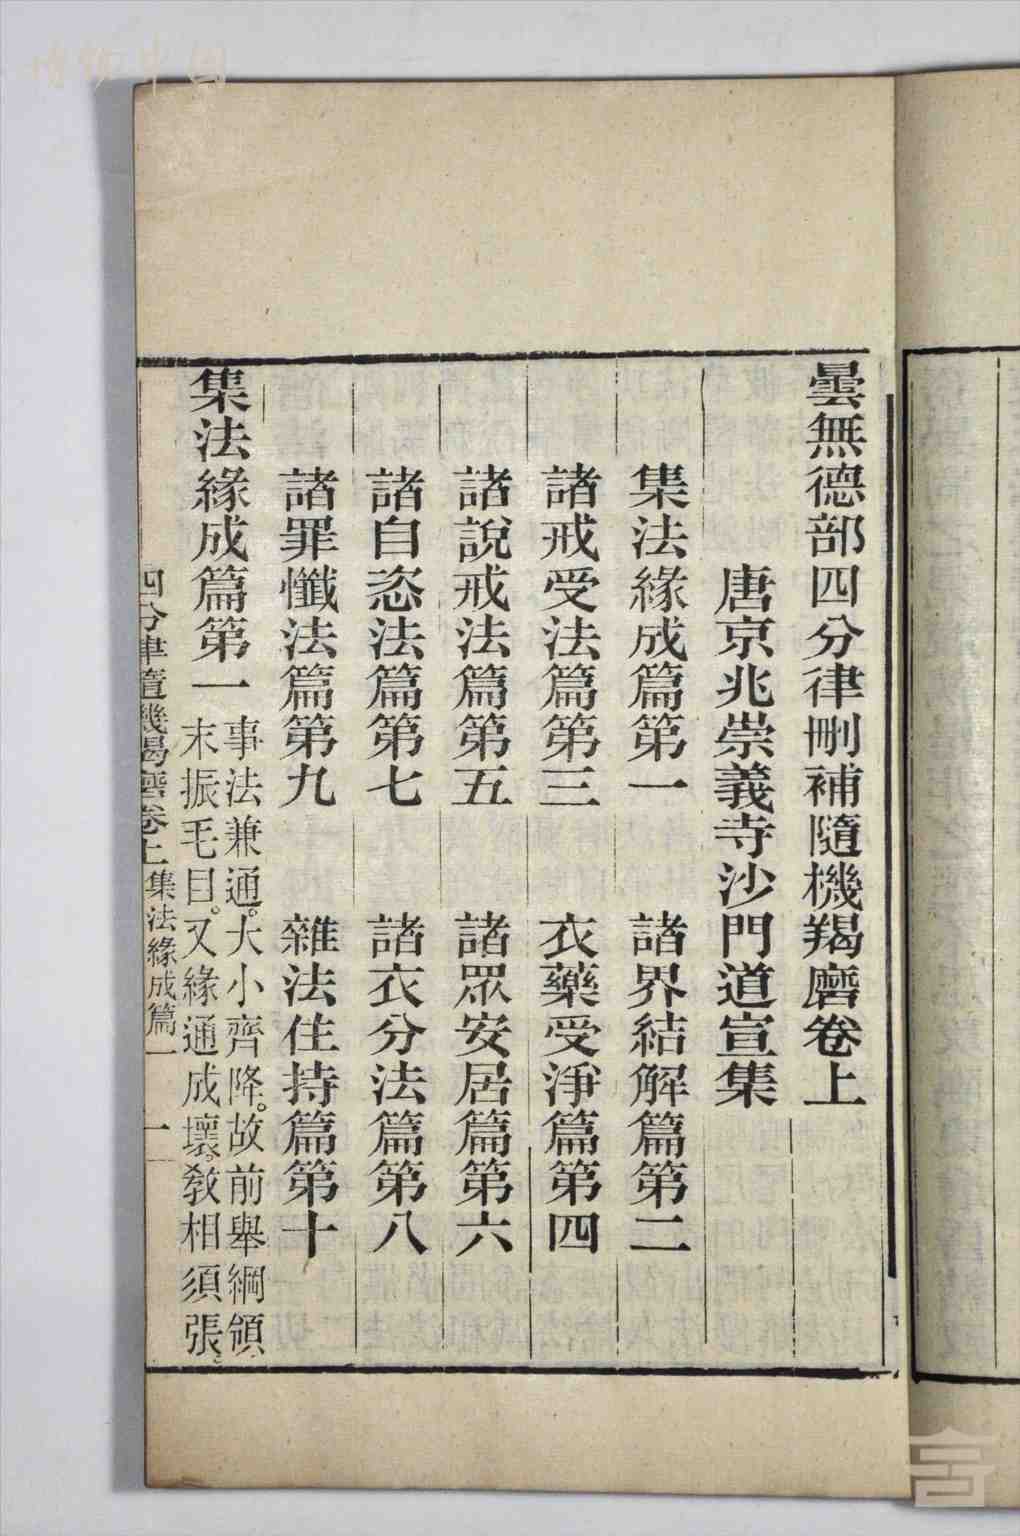 曇無德部四分律刪補隨機羯磨卷上
唐京兆崇義寺沙門道宣集
集法緣成篇第一　諸界結解篇第二
諸戒受法篇第三　衣藥受淨篇第四
諸說戒法篇第五　諸眾安居篇第六
諸自恣法篇第七　諸衣分法篇第八
諸罪懺法篇第九　雜法住持篇第十
集法緣成篇第一
事法兼通。大小齊降。故前舉綱領
末振毛目。又緣通成壞。教相須張。
四分律隨機羯磨卷上　集法緣成篇一　一
博物中国